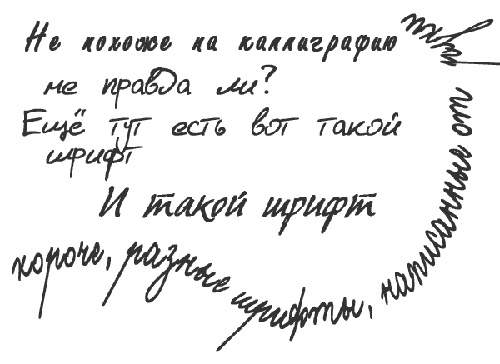 Не похоже на каллиграфию
не правда ли?
Ещё тут есть вот такой
шрифт
И такой шрифт
короче, разные шрифты, написанные от руки